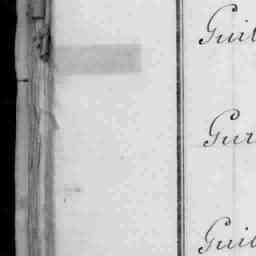 Guil
Gur
Guil